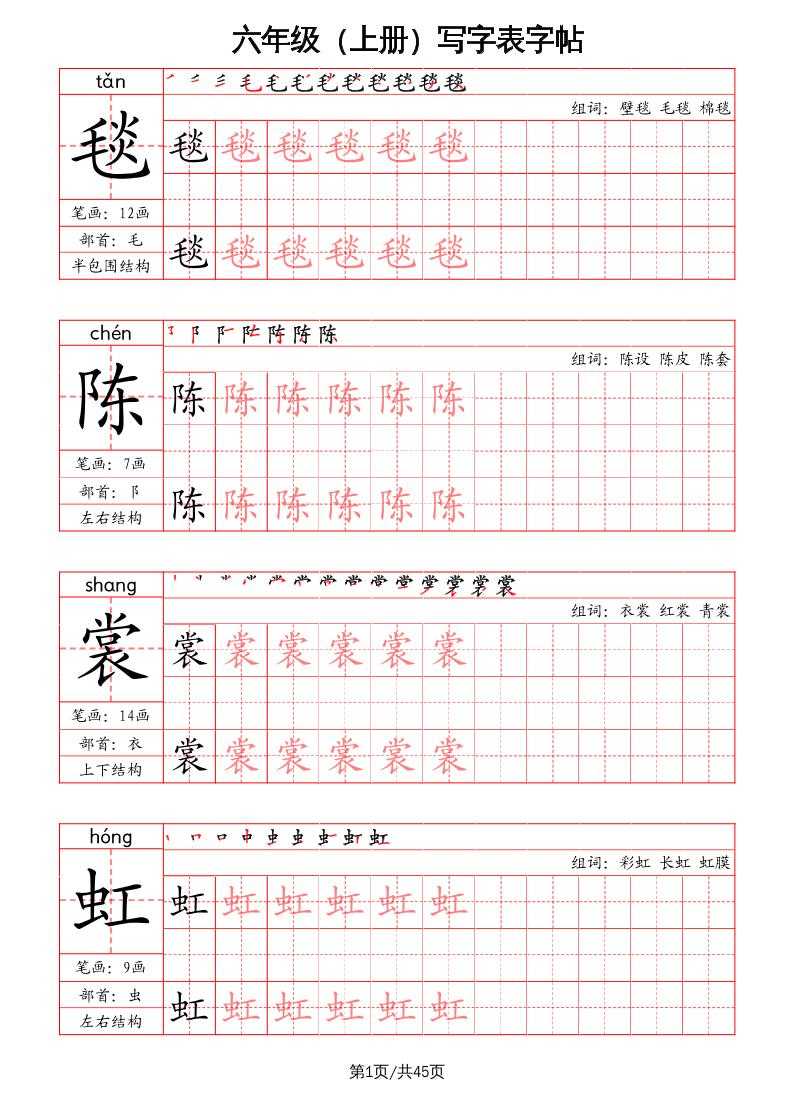 六年级（上册）写字表字帖
tǎn
组词：壁毯 毛毯 棉毯
毯
毯 毯 毯 毯 毯 毯
笔画：12画
部首：毛
半包围结构
毯 毯 毯 毯 毯 毯
chén
组词：陈设 陈皮 陈套
陈
陈 陈 陈 陈 陈 陈
笔画：7画
部首：阝
左右结构
陈 陈 陈 陈 陈 陈
shang
组词：衣裳 红裳 青裳
裳
裳 裳 裳 裳 裳 裳
笔画：14画
部首：衣
上下结构
裳 裳 裳 裳 裳 裳
hóng
组词：彩虹 长虹 虹膜
虹
虹 虹 虹 虹 虹 虹
笔画：9画
部首：虫
左右结构
虹 虹 虹 虹 虹 虹
第1页/共45页